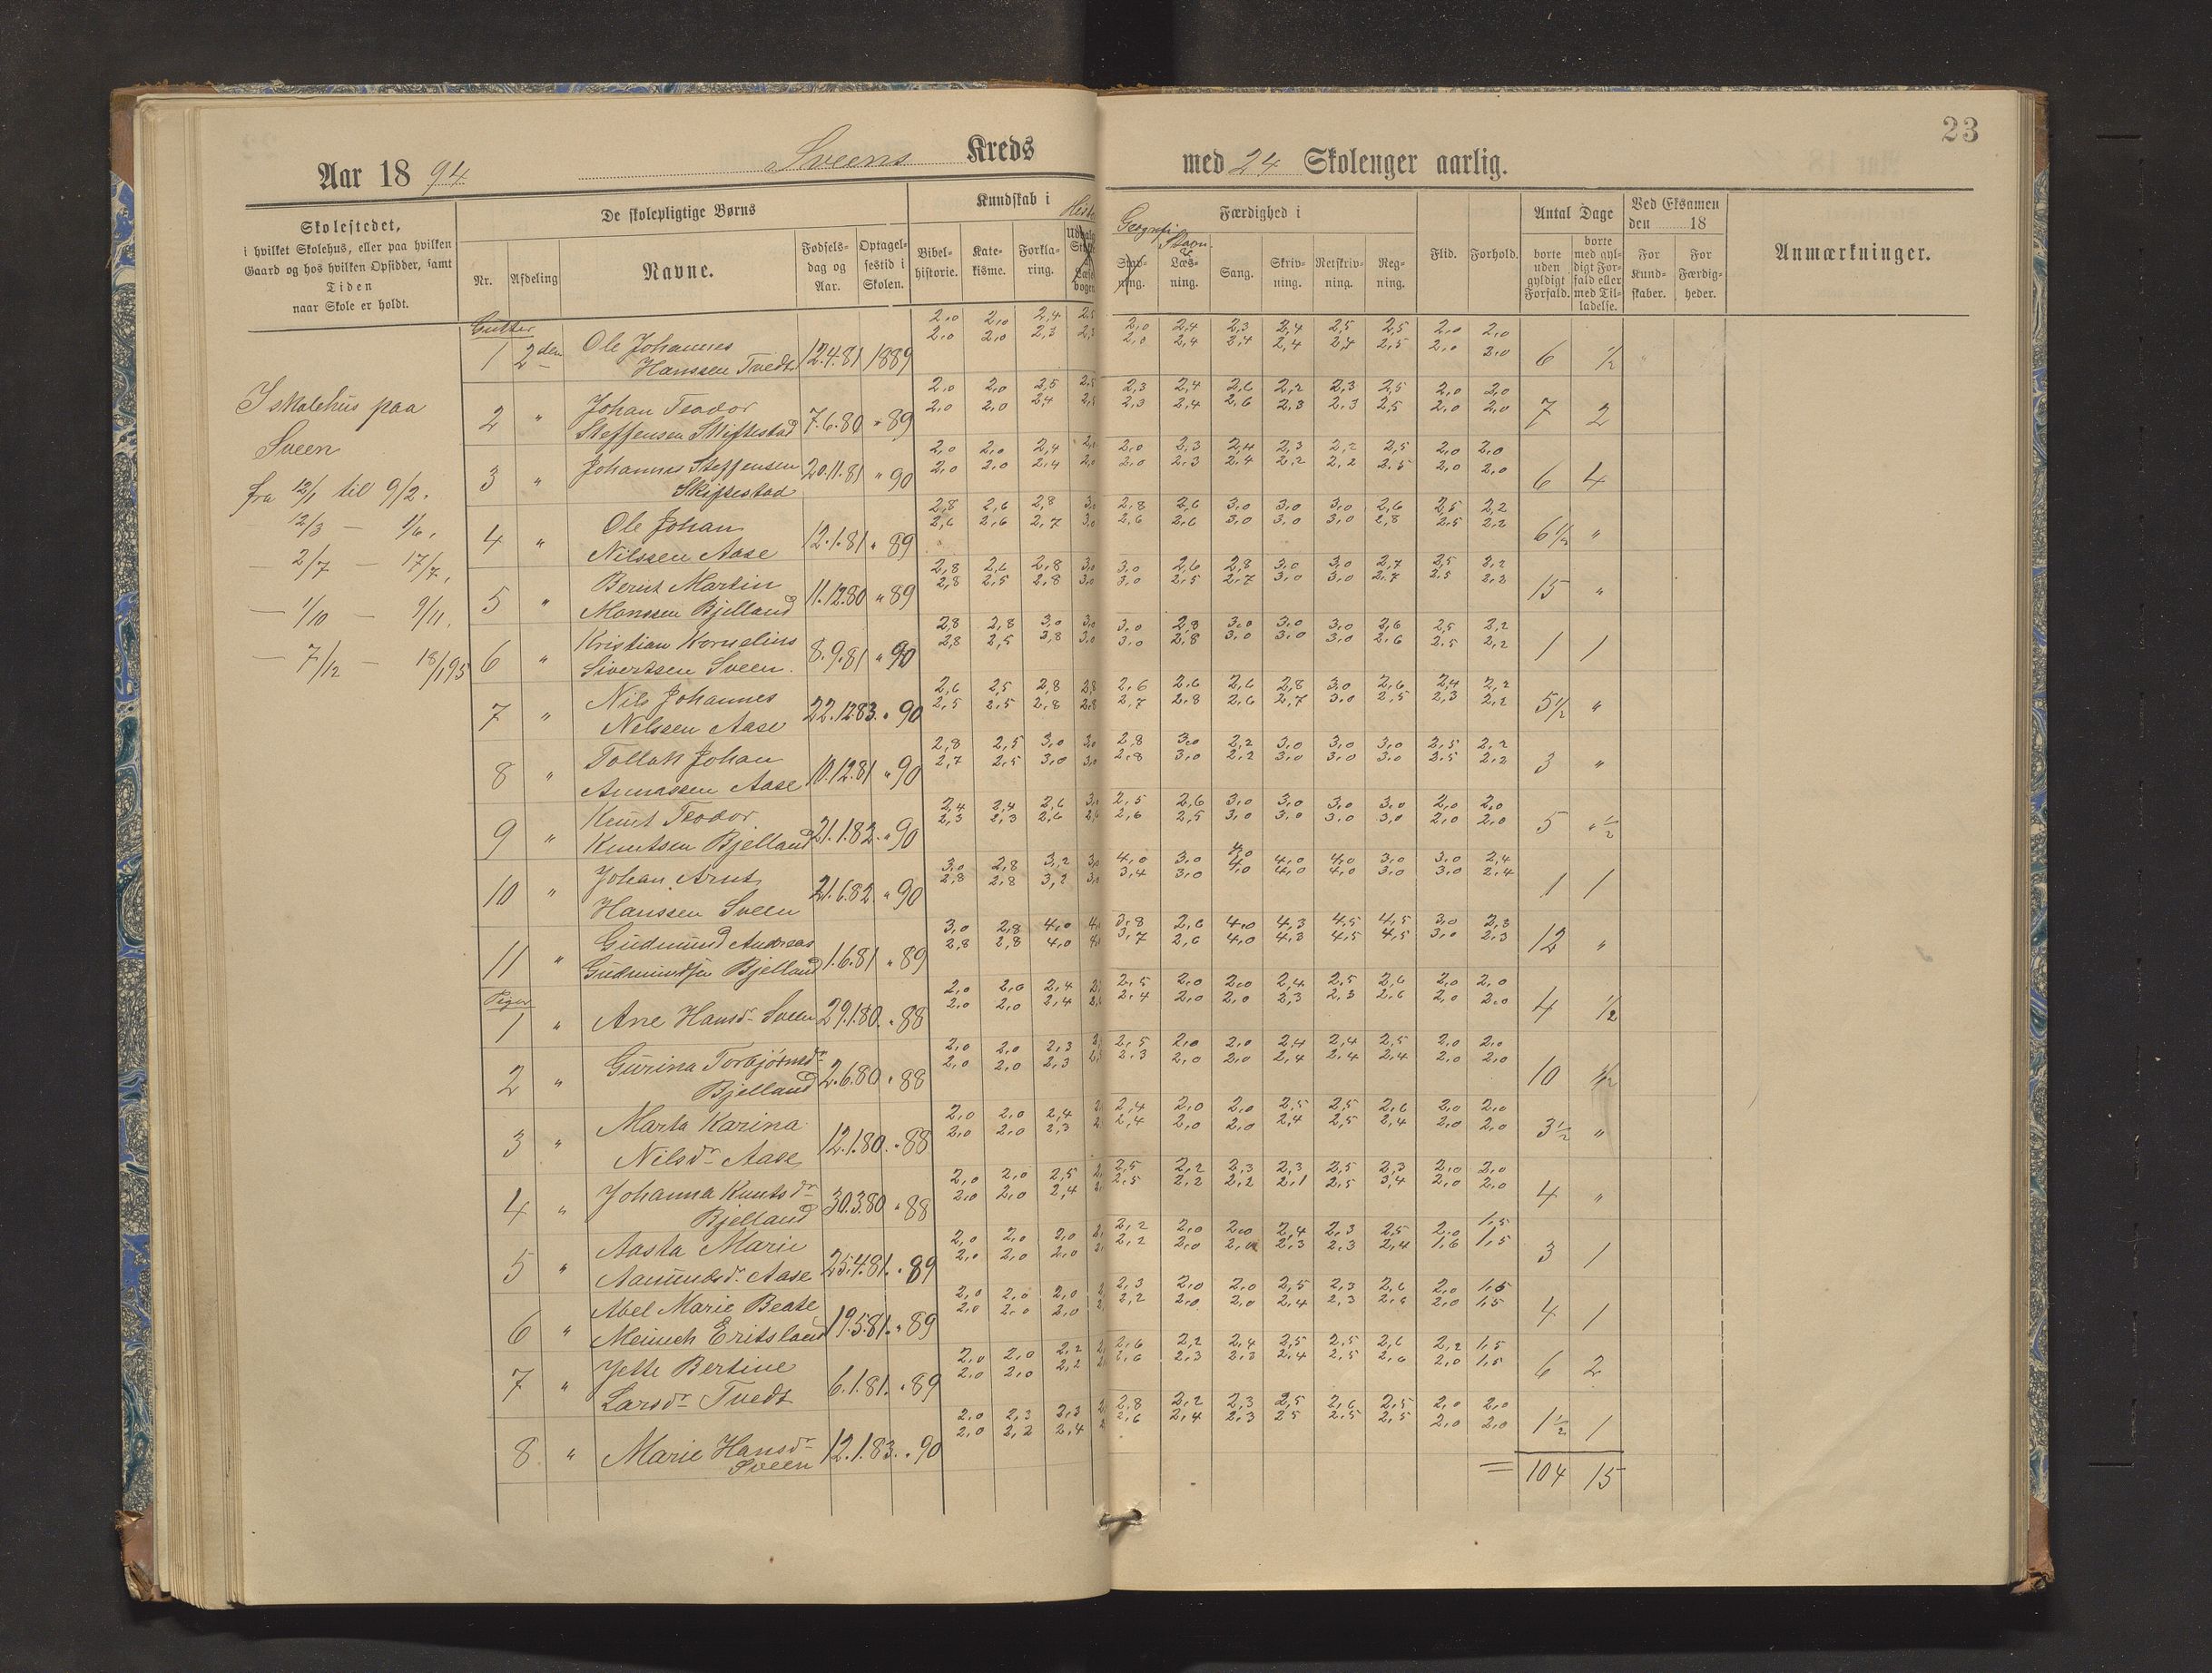 23
Aar 18 94
Sveens Kreds
med 24 Skolenger aarlig.
Skolestedet,
i hvilket Skolehus, eller paa hvilken
Gaard og hos hvilken Opsidder, samt
Tiden
naar Skole er holdt.
De skolepligtige Børns
Nr. Afdeling Navne. Fødsels-dag og Aar. Optagel-sestid i Skolen.
Kundskab i
Bibel-historie. Kate-kisme. Forkla-ring.
Geografi
Færdighed i
Stav-ning. Læs-ning. Sang. Skriv-ning. Retskriv-ning. Reg-ning.
Flid. Forhold.
Antal Dage
borte uden gyldigt Forfald. borte med gyl-digt For-fald eller med Til-ladelse.
Ved Eksamen
den 18
For Kund-skaber. For Færdig-heder.
Anmærkninger.
I skolehus paa
Sveen
fra 12/1 til 9/2.
12/3 — 1/6,
— 2/7 — 17/7,
— 1/10 — 9/11,
— 7/12 — 18/1 95
Gutter
1 2den Ole Johannes
Hanssen Tvedt 12.4.81 1889
2,0 2,0 2,4 2,5 2,0 2,4 2,3 2,4 2,5 2,5 2,0 2,0
2,0 2,0 2,3 2,0 2,4 2,4 2,4 2,4 2,5 2,0 2,0 6 1/2
2 " Johan Teodor
Steffensen Skiftestad 7.6.80 " 89
2,0 2,0 2,5 2,5 2,3 2,4 2,6 2,2 2,3 2,5 2,0 2,0
2,0 2,0 2,4 2,3 2,4 2,6 2,3 2,3 2,5 2,0 2,0 7 2
3 " Johannes Steffensen
Skiftestad 20.11.81 " 90
2,0 2,0 2,4 2,0 2,0 2,3 2,4 2,3 2,2 2,5 2,0 2,0
2,0 2,0 2,4 2,0 2,0 2,3 2,4 2,2 2,2 2,5 2,0 2,0 6 4
4 " Ole Johan
Nilssen Aase 12.1.81 " 89
2,8 2,6 2,8 3,0 2,8 2,6 3,0 3,0 3,0 2,6 2,5 2,2
2,6 2,6 2,7 3,0 2,6 2,6 3,0 3,0 3,0 2,8 2,5 2,2 6 1/2 "
5 " Bernt Martin
Monssen Bjelland 11.12.80 " 89
2,8 2,6 2,8 3,0 3,0 2,6 2,8 3,0 3,0 2,7 2,5 2,2
2,8 2,5 2,8 3,0 3,0 2,5 2,7 3,0 3,0 2,7 2,5 2,2 15 "
6 " Kristian Kornelius
Sivertsen Sveen. 8.9.81 " 90
2,8 2,8 3,0 3,0 3,0 2,8 3,0 3,0 3,0 2,6 2,5 2,2
2,8 2,5 3,8 3,0 3,0 2,8 3,0 3,0 3,0 2,6 2,5 2,2 1 1
7 " Nils Johannes
Nilssen Aase 22.12.83. " 90
2,6 2,5 2,8 2,8 2,6 2,6 2,6 2,8 3,0 2,6 2,4 2,2
2,5 2,5 2,8 2,8 2,7 2,8 2,6 2,7 3,0 2,5 2,3 2,2 5 1/2 "
8 " Tollak Johan
Aanassen Aase 10.12.81 " 90
2,8 2,5 3,0 3,0 2,8 3,0 2,2 3,0 3,0 3,0 2,5 2,2
2,7 2,5 3,0 3,0 2,8 3,0 2,2 3,0 3,0 3,0 2,5 2,2 3 "
9 " Knut Teodor
Knutsen Bjelland 21.1.82. " 90
2,4 2,4 2,6 2,5 2,6 3,0 3,0 3,0 3,0 2,0 2,0
2,3 2,3 2,6 2,6 2,5 3,0 3,0 3,0 3,0 2,0 2,0 5 " 1/2
10 " Johan Arnt
Hanssen Sveen 21.6.82. " 90
3,0 2,8 3,2 3,0 4,0 3,0 4,0 4,0 4,0 3,0 3,0 2,4
2,8 2,8 3,2 3,0 3,4 3,0 4,0 4,0 4,0 3,0 3,0 2,4 1 1
11 " Gudmund Andreas
Gudmundsen Bjelland 1.6.81 " 89
3,0 2,8 4,0 3,8 2,6 4,0 4,3 4,5 4,5 3,0 2,3
2,8 2,8 4,0 3,7 2,6 4,0 4,3 4,5 4,5 3,0 2,3 12 "
Piger
1 " Ane Hansdr Sveen 29.1.80. " 88
2,0 2,0 2,4 2,5 2,0 2,0 2,4 2,5 2,6 2,0 2,0
2,0 2,0 2,4 2,4 2,0 2,0 2,3 2,3 2,6 2,0 2,0 4 1/2
2 " Gurina Torbjørnsdr
Bjelland 2.6.80 " 88
2,0 2,0 2,3 2,5 2,0 2,0 2,4 2,4 2,5 2,0 2,0
2,0 2,0 2,3 2,3 2,0 2,0 2,4 2,4 2,4 2,0 2,0 10 1/2
3 " Marta Karina
Nilsdr Aase 12.1.80 " 88
2,0 2,0 2,4 2,4 2,0 2,0 2,5 2,5 2,6 2,0 2,0
2,0 2,0 2,3 2,4 2,0 2,0 2,4 2,5 2,4 2,0 2,0 3 1/2 "
4 " Johanna Knutsdr
Bjelland 30.3.80 " 88
2,0 2,0 2,5 2,5 2,2 2,3 2,3 2,5 2,3 2,0 2,0
2,0 2,0 2,4 2,5 2,2 2,2 2,1 2,5 3,4 2,0 2,0 4 "
5 " Aasta Marie
Aamundsdr. Aase 25.4.81. " 89
2,0 2,0 2,0 2,2 2,0 2,0 2,4 2,3 2,5 2,0 1,5
2,0 2,0 2,0 2,2 2,0 2,0 2,3 2,3 2,4 1,6 1,5 3 1
6 " Abel Marie Beate
Meinich Eritsland 19.5.81. " 89
2,0 2,0 2,0 2,3 2,0 2,0 2,5 2,3 2,6 2,0 1,5
2,0 2,0 2,0 2,2 2,0 2,0 2,4 2,3 2,6 2,0 1,5 4 1
7 " Jette Bertine
Larsdr Tvedt 6.1.81. " 89
2,0 2,0 2,2 2,6 2,2 2,4 2,5 2,5 2,6 2,2 1,5
2,0 2,0 2,2 2,6 2,3 2,3 2,4 2,5 2,6 2,0 1,5 6 2
8 " Marie Hansdr
Sveen 12.1.83. " 90
2,0 2,3 2,3 2,8 2,2 2,3 2,5 2,6 2,5 2,0 2,0
2,0 2,2 2,4 2,6 2,4 2,3 25 2,5 2,5 2,0 2,0 1 1/2 1
= 104 15